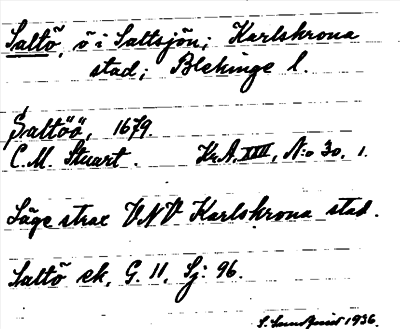 Saltö, ö i Saltsjön; Karlskrona
stad; Blekinge l.
Saltöö, 1679.
C.M. Stuart. Kr.A. XIII, N:o 30, 1.
Läge strax VNV Karlskrona stad.
Saltö ek. G. 11, Sj. 96.
S. Sundquist 1936.